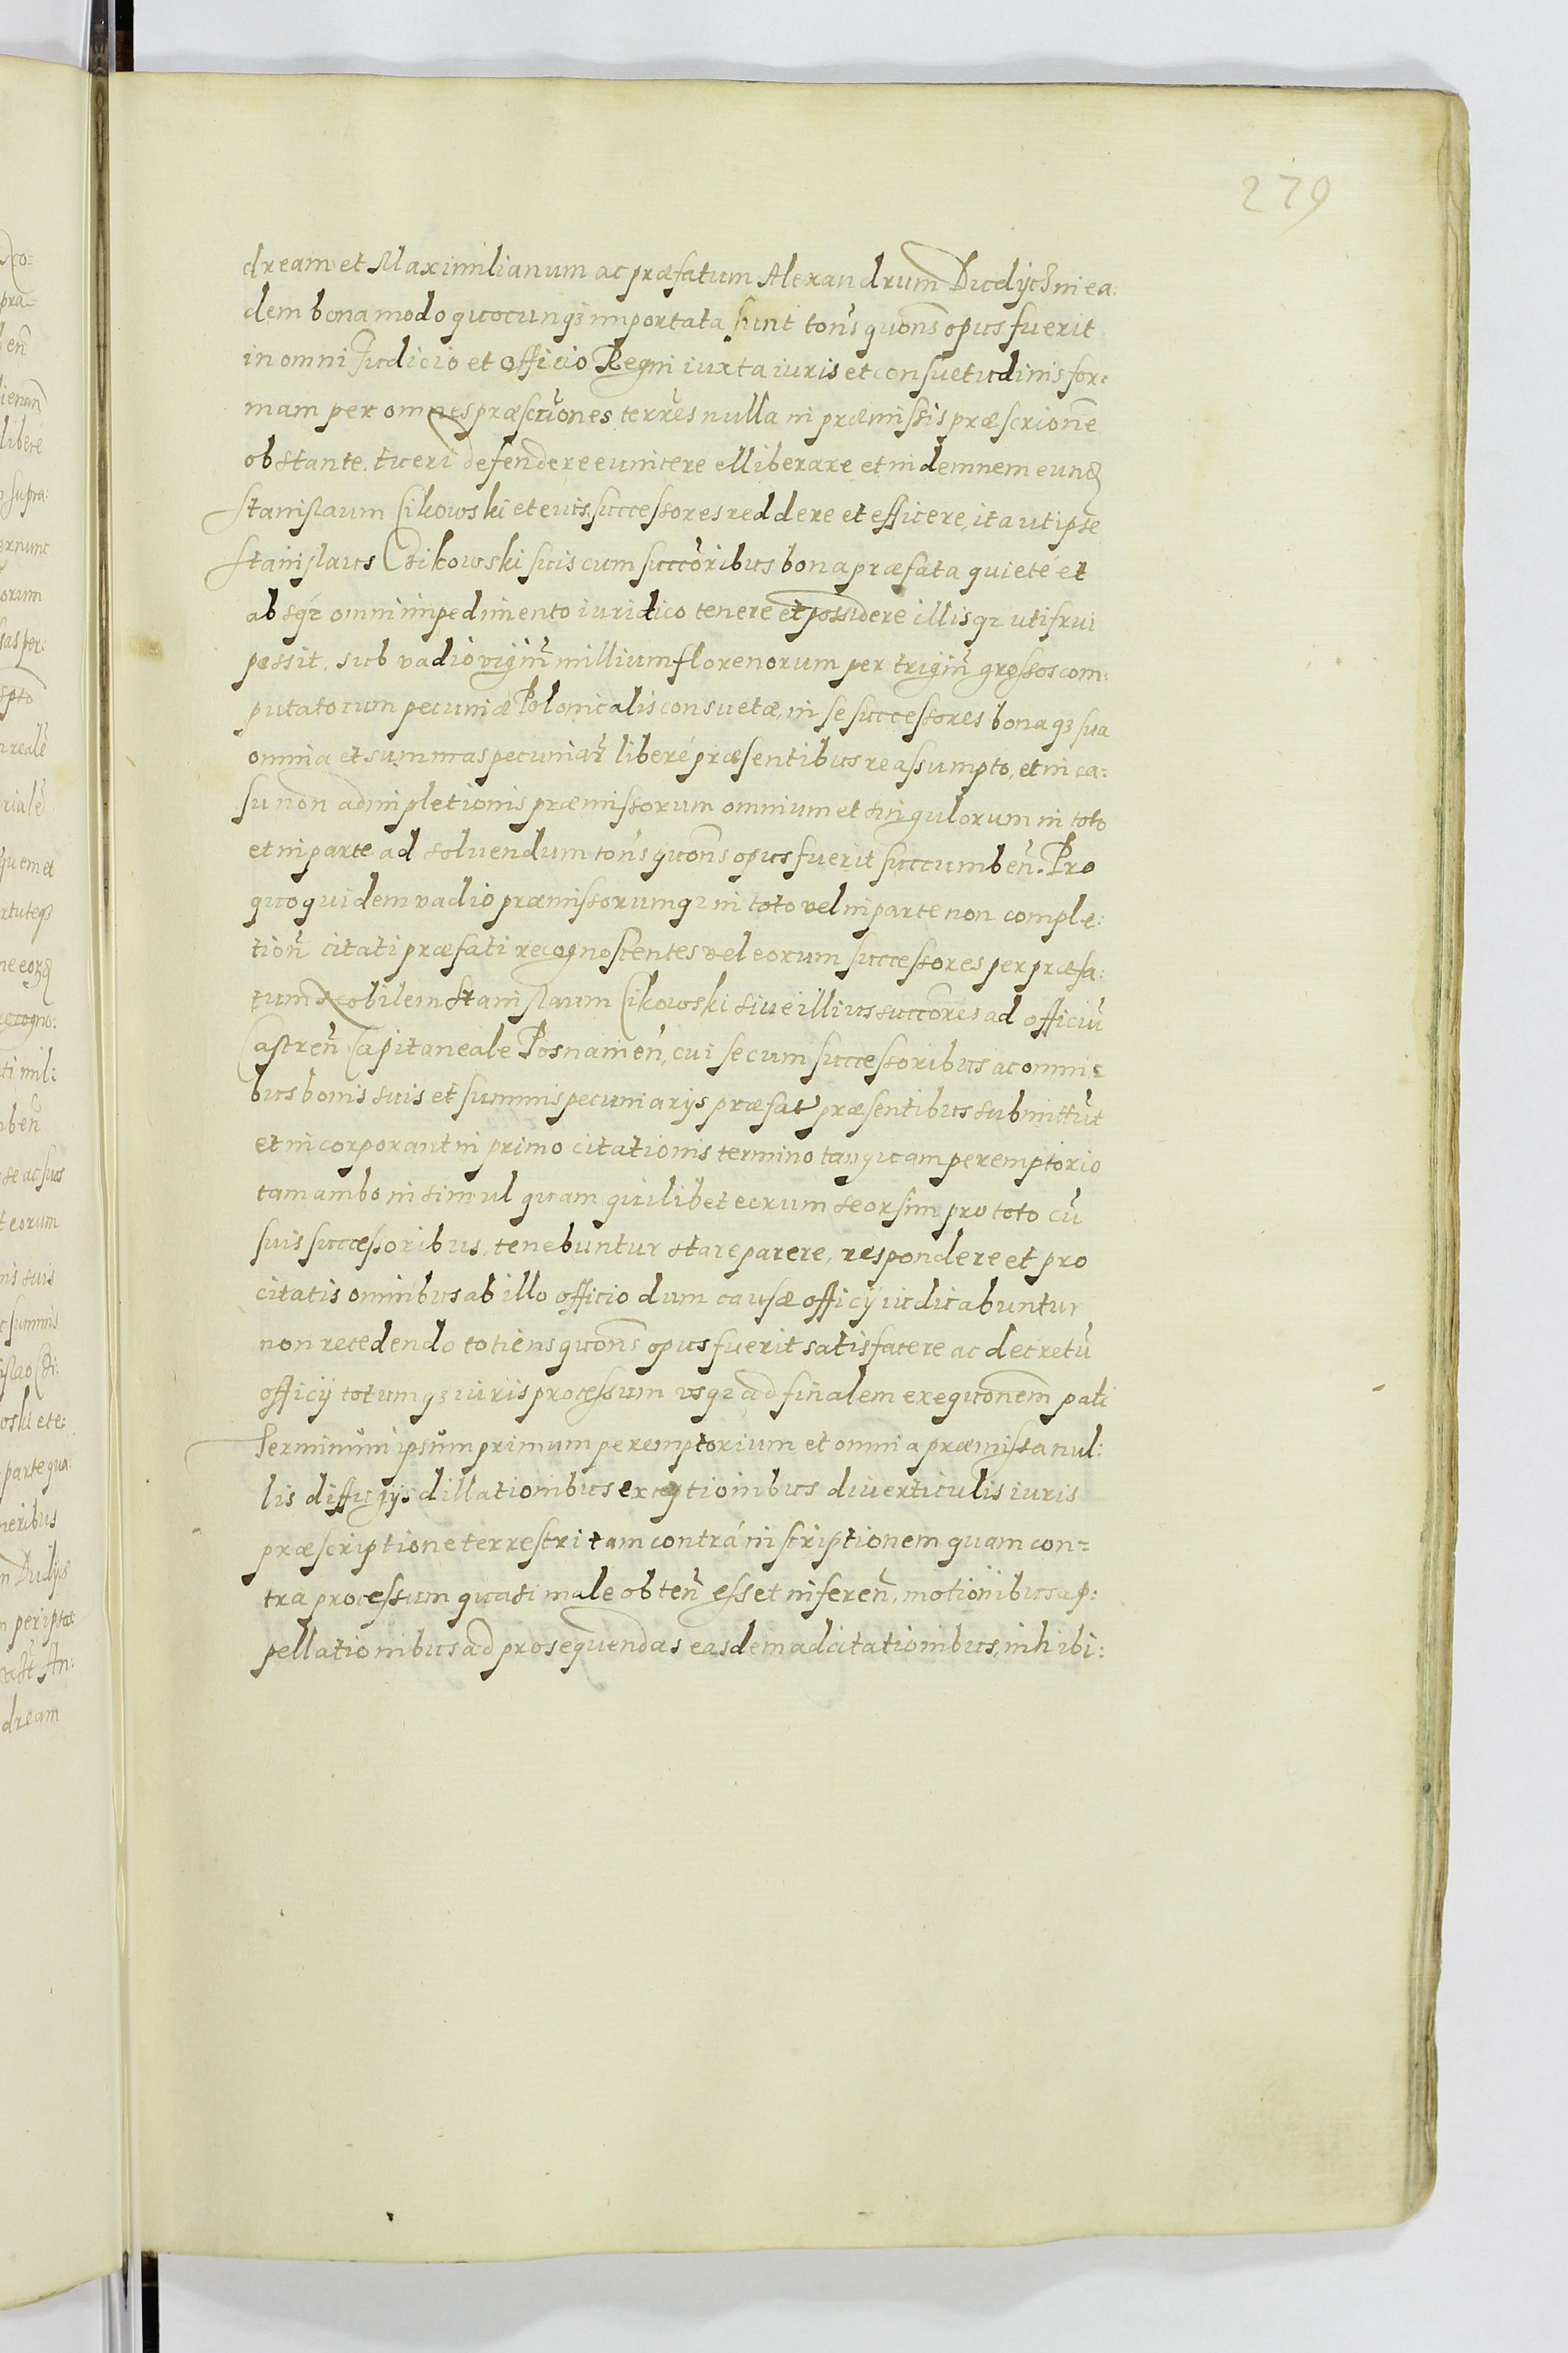 279
dream et Maximilianum ac præfatum Alexandrum Dudÿcz in ea:
dem bona modo quocunq3 importata sunt toñs quoñs opus fuerit
in omni Judicio et Officio Regni iuxta iuris et consuetudinis for:
mam per omnes præscrıones terrẽs nulla in præmissis præscrionẽ
obstante. tueri defendere euincere elliberare et indemnem eund
Stanislaum Cikowski et eius successores reddere et efficere, ita ut ipse
Stanislaus Czikowski suis cum succõribus bona præfata quiete et
absq3 omni impedimento iuridico tenere et possidere illisq3 uti frui
possit, sub vadio vigiñ millium florenorum per trigiñ grossos com:
putatorum pecuniæ Polonicalis consuetæ, in se successores bonaq3 sua
omnia et summas pecuniar̃ liberé præsentibus reassumpto, et in ca:
su non adimpletionis præmissorum omnium et singulorum in toto
et in parte ad soluendum toñs quoñs opus fuerit succumbeñ. Pro
quo quidem vadio præmissorumq3 in toto vel in parte non comple:
tioñ citati præfati recognoscentes vel eorum successores per præfa:
tum Nobilem Stanislaum Cikowski siue illius succõres ad officiũ
Castreñ Capitaneale Posnanieñ, cui se cum successoribus ac omni:
bus bonis suis et summis pecuniarÿs præfat præsentibus submittũt
et incorporant in primo citationis termino tanquam peremptorio
tam ambo insimul quam quilibet eorum seorsim pro toto cũ
suis successoribus, tenebuntur stare parere, respondere et pro
citatis omnibus ab illo officio dum causæ officÿ iudicabuntur
non recedendo totiens quoñs opus fuerit satisfacere ac decretũ
officÿ totumq3 iuris processum usq3 ad finalem exequõnem pati
Terminum ipsum primum peremptorium et omnia præmissa nul:
lis diffugÿs dillationibus exceptionibus diuerticulis iuris
præscriptione terrestri tam contrá inscriptionem quam con=
tra processum quasi male obteñ esset infereñ, motionibus ap:
pellationibus ad prosequendas easdem adcitationibus, inhibi: